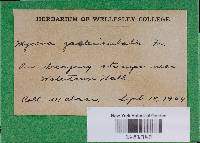 HERBARIUM OF WELLESLEY COLLEGE.
Mycena galericulata Fr.
On decaying stumps near
Hall
Coll. Sept. 18, 1904
New York Botanical Garden